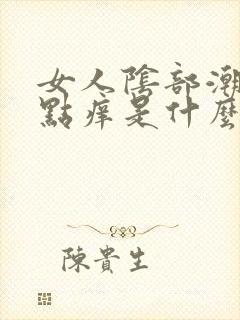 女人陰部潮
點痒是什麼
陳貴生